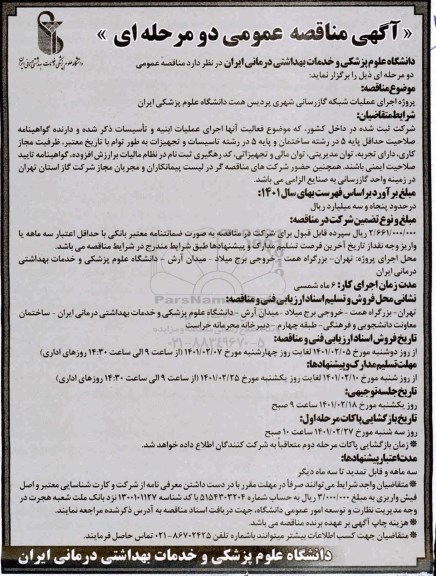 « آگهی مناقصه عمومی دو مرحله ای »
دانشگاه علوم پزشکی و خدمات بهداشتی درمانی ایران در نظر دارد مناقصه عمومی
دو مرحله ای ذیل را برگزار نماید:
موضوع مناقصه:
پروژه اجرای عملیات شبکه گازرسانی شهری پردیس همت دانشگاه علوم پزشکی ایران
شرایط متقاضیان:
شرکت ثبت شده در داخل کشور، که موضوع فعالیت آنها اجرای عملیات ابنیه و تأسیسات ذکر شده و دارنده گواهینامه
صلاحیت حداقل پایه ۵ در رشته ساختمان و پایه ۵ در رشته تاسیسات و تجهیزات به طور توام با تاریخ معتبر، ظرفیت مجاز
کاری، دارای تجربه، توان مدیریتی، توان مالی و تجهیزاتی، کد رهگیری ثبت نام در نظام مالیات بر ارزش افزوده، گواهینامه تایید
صلاحیت ایمنی باشند. همچنین حضور شرکت های مناقصه گر در لیست پیمانکاران و مجریان مجاز شرکت گاز استان تهران
در زمینه واحد گازرسانی به صنایع الزامی می باشد.
مبلغ برآورد بر اساس فهرست بهای سال ۱۴۰۱:
در حدود پنجاه و سه میلیارد ریال
مبلغ و نوع تضمین شرکت در مناقصه:
۲/۶۶۱/۰۰۰/۰۰۰ ریال سپرده قابل قبول برای شرکت در مناقصه به صورت ضمانتنامه معتبر بانکی با حداقل اعتبار سه ماهه یا
واریز وجه نقد از تاریخ آخرین فرصت تسلیم مدارک و پیشنهادها طبق شرایط مندرج در شرایط مناقصه می باشد.
محل اجرای پروژه: تهران - بزرگراه همت - خروجی برج میلاد - میدان آرش - دانشگاه علوم پزشکی و خدمات بهداشتی
درمانی ایران
مدت زمان اجرای کار: ۶ ماه شمسی
نشانی محل فروش و تسلیم اسناد ارزیابی فنی و مناقصه:
تهران - بزرگراه همت - خروجی برج میلاد - میدان آرش - دانشگاه علوم پزشکی و خدمات بهداشتی درمانی ایران - ساختمان
معاونت دانشجویی و فرهنگی - طبقه چهارم - دبیرخانه محرمانه حراست
تاریخ فروش اسناد ارزیابی فنی و مناقصه:
از روز دوشنبه مورخ ۱۴۰۱/۰۲/۰۵ لغایت روز چهارشنبه مورخ ۱۴۰۱/۰۲/۰۷ (از ساعت ۹ الی ساعت ۱۴:۳۰ روزهای اداری)
مهلت تسلیم مدارک و پیشنهادها:
از روز شنبه مورخ ۱۴۰۱/۰۲/۱۰ لغایت روز یکشنبه مورخ ۱۴۰۱/۰۲/۲۵ (از ساعت ۹ الی ساعت ۱۴:۳۰ روزهای اداری)
تاریخ جلسه توجیهی:
روز یکشنبه مورخ ۱۴۰۱/۰۲/۱۸ ساعت ۹ صبح
تاریخ بازگشایی پاکات مرحله اول:
روز سه شنبه مورخ ۱۴۰۱/۰۲/۲۷ ساعت ۱۰ صبح
* زمان بازگشایی پاکات مرحله دوم متعاقباً به شرکت کنندگان اطلاع داده خواهد شد.
مدت اعتبار پیشنهادها:
سه ماهه و قابل تمدید تا سه ماه دیگر
* متقاضیان واجد شرایط می توانند صرفاً در مهلت مقرر با در دست داشتن معرفی نامه از شرکت و کارت شناسایی معتبر و اصل
فیش واریزی به مبلغ ۳/۰۰۰/۰۰۰ ریال به حساب شماره ۵۱۵۴۳۰۳۲۰۴ با کد شناسه ۱۳۰۰۱۰۱۱۲۷ نزد بانک ملت شعبه هجرت در
وجه مدیریت نظارت و توسعه امور عمومی دانشگاه، جهت دریافت اسناد مناقصه به آدرس ذکر شده مراجعه نمایند.
* هزینه چاپ آگهی بر عهده برنده مناقصه می باشد.
* متقاضیان جهت کسب اطلاعات بیشتر میتوانند با شماره تلفن ۸۶۷۰۲۴۲۵-۰۲۱ تماس حاصل فرمایند.
دانشگاه علوم پزشکی و خدمات بهداشتی درمانی ایران
ParsNamad
۰۲۱-۸۸۳۴۹۶۷۰-۵